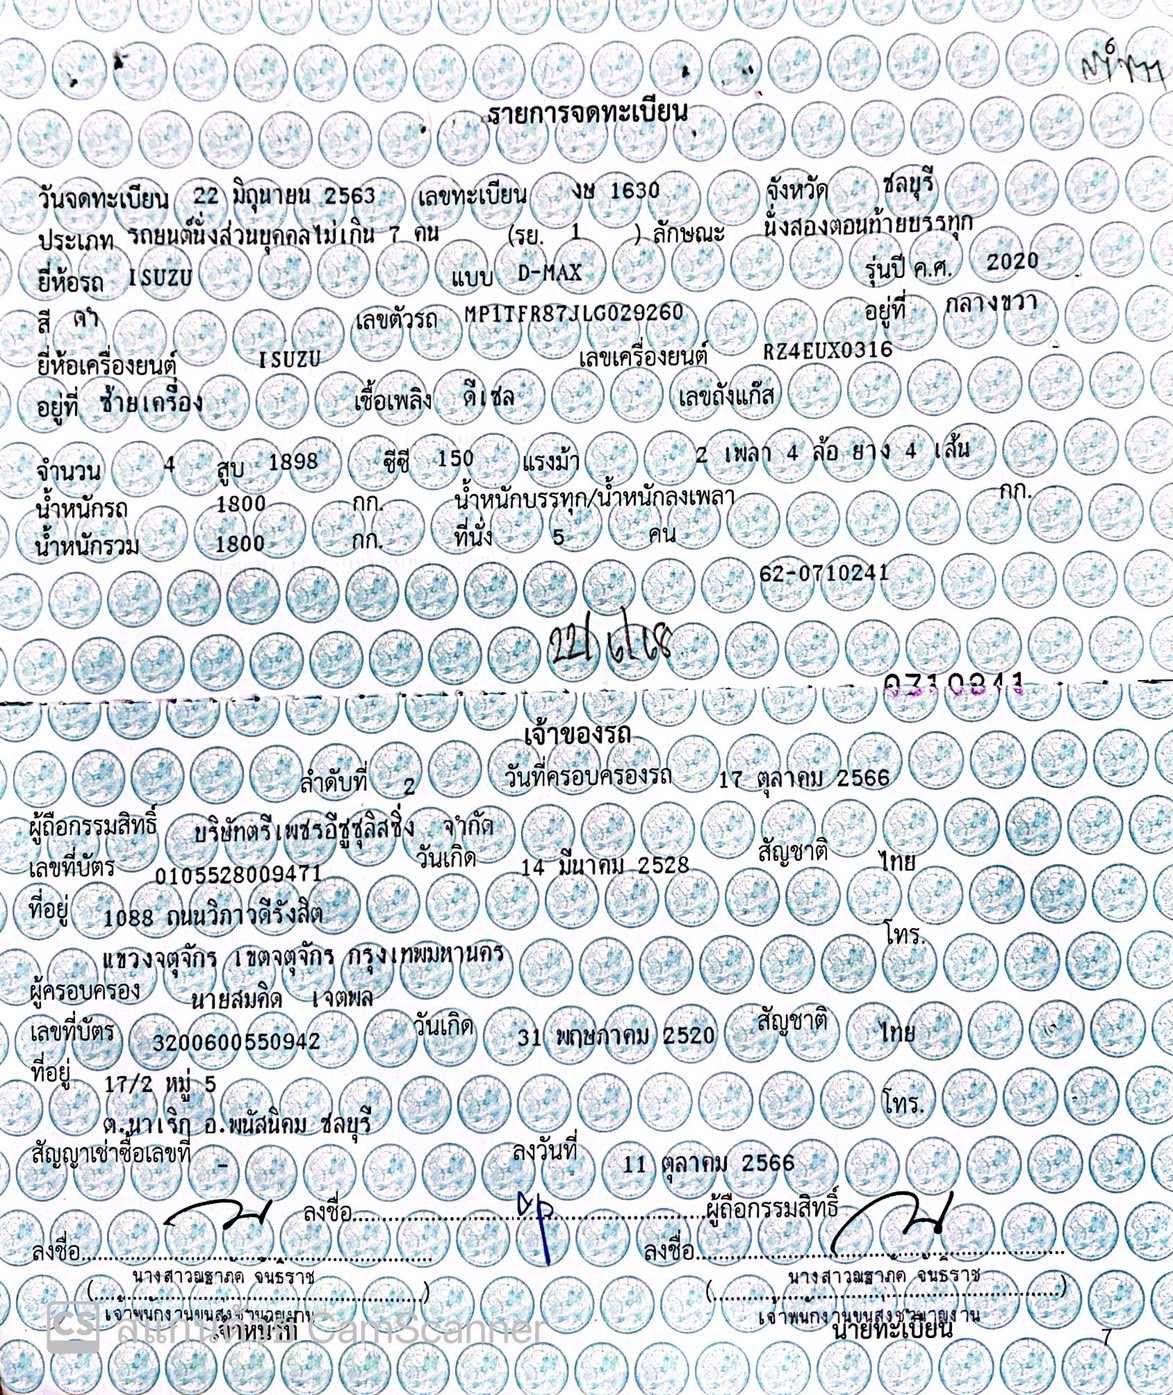 6
รายการจดทะเบียน
วันจดทะเบียน 22 มิถุนายน 2563 เลขทะเบียน งษ 1630 จังหวัด ชลบุรี
ประเภท รถยนต์นั่งส่วนบุคคลไม่เกิน 7 คน (รย. 1 ) ลักษณะ นั่งสองตอนท้ายบรรทุก
ยี่ห้อรถ ISUZU แบบ D-MAX รุ่นปี ค.ศ. 2020
สี ดำ เลขตัวรถ MP1TFR87JLG029260 อยู่ที่ กลางขวา
ยี่ห้อเครื่องยนต์ ISUZU เลขเครื่องยนต์ RZ4EUX0316
อยู่ที่ ซ้ายเครื่อง เชื้อเพลิง ดีเซล เลขถังแก๊ส
จำนวน 4 สูบ 1898 ซีซี 150 แรงม้า 2 เพลา 4 ล้อ ยาง 4 เส้น
น้ำหนักรถ 1800 กก. น้ำหนักบรรทุก/น้ำหนักลงเพลา กก.
น้ำหนักรวม 1800 กก. ที่นั่ง 5 คน
62-0710241
22/6/68
0710241
เจ้าของรถ
ลำดับที่ 2 วันที่ครอบครองรถ 17 ตุลาคม 2566
ผู้ถือกรรมสิทธิ์ บริษัทตรีเพชรอีซูซุลิสซิ่ง จำกัด
เลขที่บัตร 0105528009471 วันเกิด 14 มีนาคม 2528 สัญชาติ ไทย
ที่อยู่ 1088 ถนนวิภาวดีรังสิต
โทร.
แขวงจตุจักร เขตจตุจักร กรุงเทพมหานคร
ผู้ครอบครอง นายสมคิด เจตพล
เลขที่บัตร 3200600550942 วันเกิด 31 พฤษภาคม 2520 สัญชาติ ไทย
ที่อยู่ 17/2 หมู่ 5
โทร.
ต.นาเริก อ.พนัสนิคม ชลบุรี
สัญญาเช่าซื้อเลขที่ - ลงวันที่ 11 ตุลาคม 2566
ลงชื่อ ผู้ถือกรรมสิทธิ์
ลงชื่อ ลงชื่อ
(นางสาวณฐาภัค จันธิราช) (นางสาวณฐาภัค จันธิราช)
เจ้าพนักงานขนส่งชำนาญงาน เจ้าพนักงานขนส่งชำนาญงาน
เจ้าหน้าที่ นายทะเบียน
7
CS สแกนด้วย CamScanner